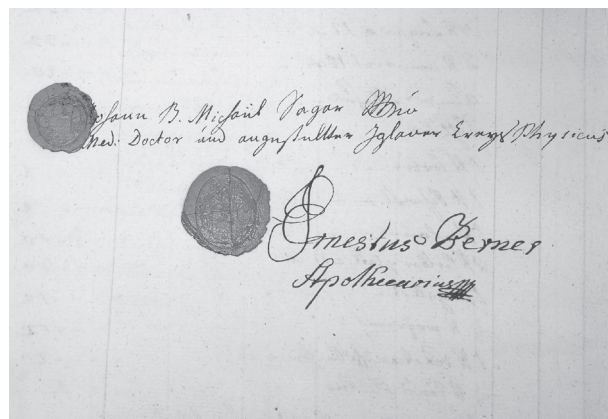 Johann B. Michaël Sagar
Med: Doctor und angestellter Iglauer Kreys Physicus
Ernestus Berner
Apothecarius